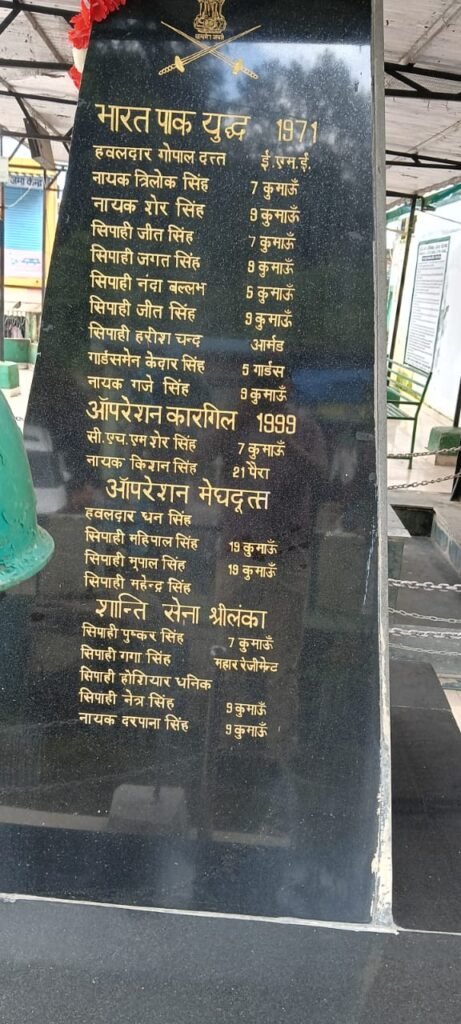 भारत पाक युद्ध 1971
हवलदार गोपाल दत्त ई.एम.ई.
नायक त्रिलोक सिंह 7 कुमाऊँ
नायक शेर सिंह 9 कुमाऊँ
सिपाही जीत सिंह 7 कुमाऊँ
सिपाही जगत सिंह 9 कुमाऊँ
सिपाही नंदा बल्लभ 5 कुमाऊँ
सिपाही जीत सिंह 9 कुमाऊँ
सिपाही हरीश चन्द आर्मड
गार्डसमेन केदार सिंह 5 गार्डस
नायक गजे सिंह 9 कुमाऊँ
ऑपरेशन कारगिल 1999
सी.एच.एम शेर सिंह 7 कुमाऊँ
नायक किशन सिंह 21 पैरा
ऑपरेशन मेघदूत
हवलदार धन सिंह
सिपाही महिपाल सिंह 19 कुमाऊँ
सिपाही भूपाल सिंह 19 कुमाऊँ
सिपाही महेन्द्र सिंह
शान्ति सेना श्रीलंका
सिपाही पुष्कर सिंह 7 कुमाऊँ
सिपाही गंगा सिंह महार रेजीमेन्ट
सिपाही होशियार धनिक
सिपाही नेत्र सिंह 9 कुमाऊँ
नायक दरपाना सिंह 9 कुमाऊँ